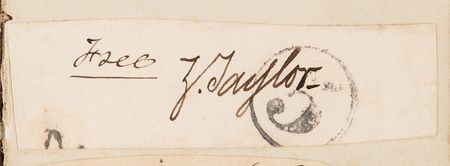 Free Z. Taylor
5